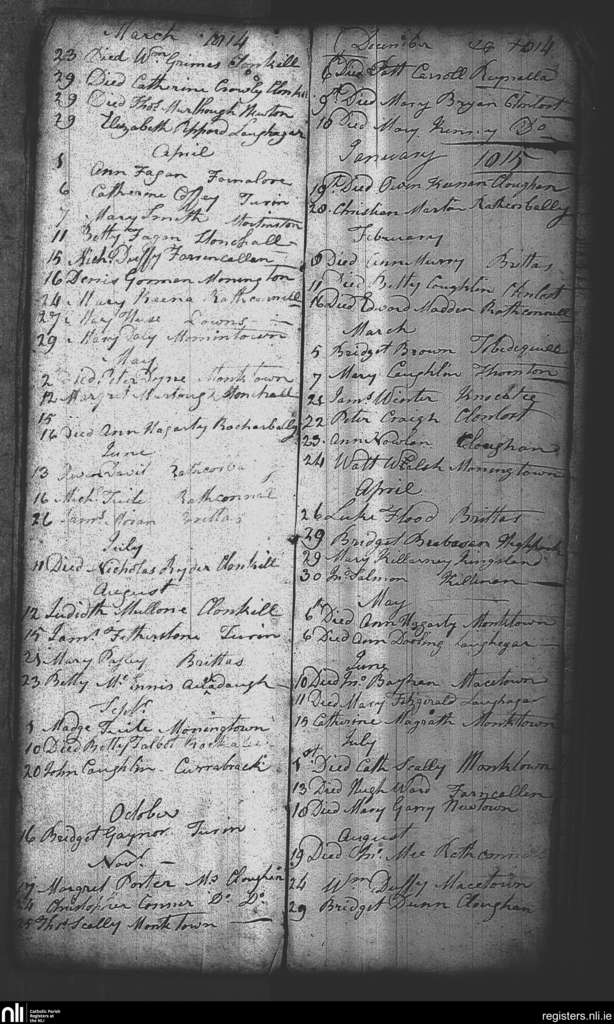 March 1814
23 Died Wm Grimes Clonkill
29 Died Catherine Crowly Clonkill
29 Died Thos Murthough Newton
29 Elizabeth Peppard Laughagar
April
5 Ann Fagan Fornalore
6 Catherine Coffey Turin
7 Mary Smith
11 Betty Fagan Stonehall
15 Nichs Duffy Farrancallen
16 Denis Gorman Moningtown
24 Mary Rathconnell
27 Mary Downs
29 Mary Daly Monintown
May
2 Died Peter Tyne Monktown
12 Margret Murtough Stonehall
15
16 Died Ann Hagarty Racharbally
June
13 David
16 Mich Tuite Rathconnal
26 Jams Brittas
July
11 Died Nicholas Ryder Clonkill
August
12 Judidth Mullone Clonkill
15 Jams Fetherstone Turin
21 Mary Brittas
23 Betty McEnnis
Septr
5 Madge Tuite Moningtown
10 Died Betty Talbot
20 John Caughlin Currabrack
October
16 Bridget Gaynor Turin
Novr
17 Margret Porter Cloughan
24 Christopher Conner Do Do
25 Thos Scally Monktown
December 26 1814
6 Died Patt Carroll
9th Died Mary Bryan Clonlost
10 Died Mary Kenny Do
January 1815
19th Died Owin Cloughan
20 Christian Martin Rathcorbally
February
8 Died Ann Murry Brittas
11 Died Betty Coughlin Clonlost
16 Died Edward Madden Rathconnell
March
5 Bridget Brown
7 Mary Caughlin Thornton
21 Jams Winter
22 Peter Craigh Clonlost
23 Ann Nowlan Cloughan
24 Watt Welsh Moningtown
April
26 Luke Flood Brittas
29 Bridget Brabason
29 Mary Killarney Kingsland
30 Jno Salmon Killinan
May
6th Died Ann Hagarty Monktown
6 Died Ann Dooling Laughegar
June
10 Died Jno Baghan Macetown
11 Died Mary Fitzgerald Laughagar
13 Catherine Magrath Monktown
July
1st Died Cath Scally Monktown
13 Died Hugh Ward Farncallen
18 Died Mary Garry Newtown
August
19 Died Jno Mee Rathconnell
24 Wm Duffy Macetown
29 Bridget Dunn Cloughan
nli
Catholic Parish
Registers at
the NLI
registers.nli.ie